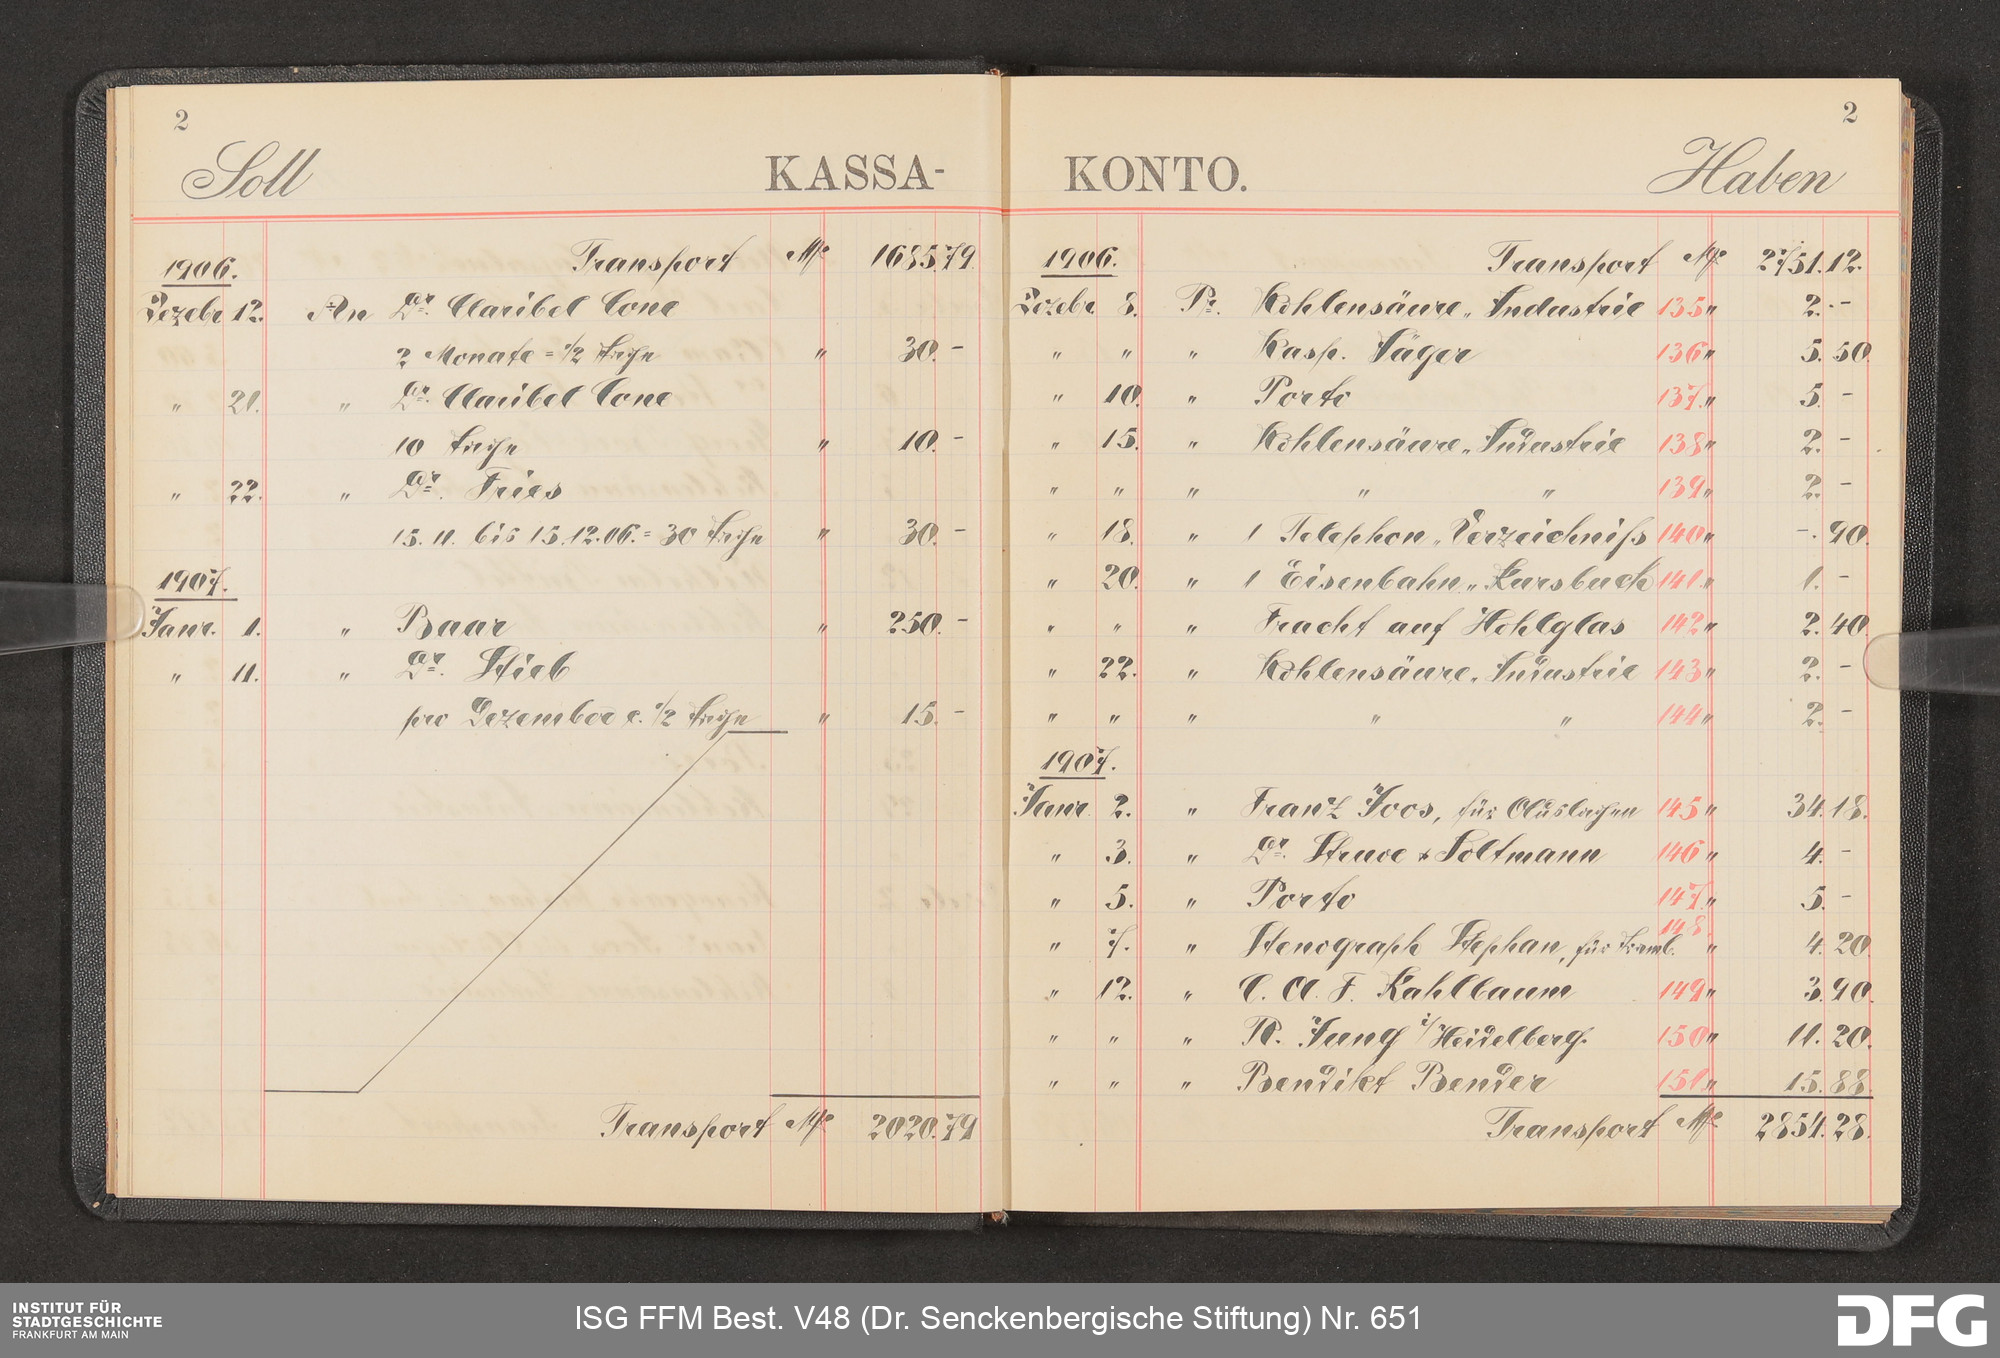 2
Soll KASSA-
1906. Transport M. 1685.79
Dezebr 12. An Dr. Claribel Cone
2 Monate = 1/2 Tische " 30. -
" 21. " Dr. Claribel Cone
10 Tische " 10. -
" 22. " Dr. Fries
15. 11. bis 15.12.06. = 30 Tische " 30. -
1907.
Janr. 1. " Baar " 250. -
" 11. " Dr. Stieb
pro Dezember c. 1/2 Tische " 15. -
Transport M. 2020.79
2
KONTO. Haben
1906. Transport M. 2751.12.
Dezebr 8. Pr. Kohlensäure-Industrie 135 " 2. -
" " " Kasp. Jäger 136 " 5. 50.
" 10. " Porto 137. " 5. -
" 15. " Kohlensäure-Industrie 138 " 2. -
" " " " " 139 " 2. -
" 18. " 1 Telephon-Verzeichniß 140 " -. 90.
" 20. " 1 Eisenbahn-Kursbuch 141. " 1. -
" " " Fracht auf Hohlglas 142 " 2. 40.
" 22. " Kohlensäure-Industrie 143 " 2. -
" " " " " 144 " 2. -
1907.
Janr. 2. " Franz Joos, für Auslagen 145 " 34. 18.
" 3. " Dr. Struve & Soltmann 146 " 4. -
" 5. " Porto 147. " 5. -
" 7. " Stenograph Stephan, für 148. " 4. 20.
" 12. " C. A. F. Kahlbaum 149 " 3. 90.
" " " R. Jung i/Heidelberg. 150 " 11. 20.
" " " Bendikt Bender 151. " 15. 88.
Transport M. 2854. 28.
INSTITUT FÜR
STADTGESCHICHTE
FRANKFURT AM MAIN
ISG FFM Best. V48 (Dr. Senckenbergische Stiftung) Nr. 651
DFG